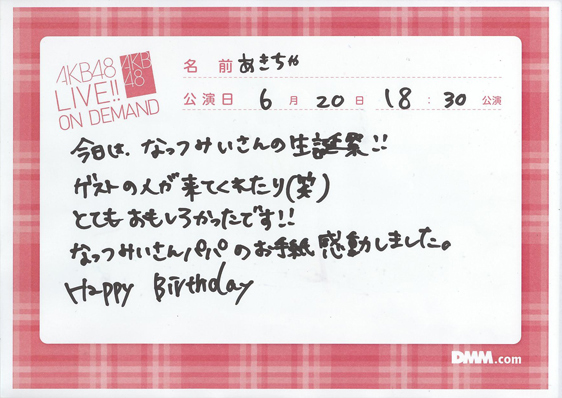 AKB48
LIVE!!
ON DEMAND
AKB
48
名 前 あきちゃ
公演日 6 月 20 日 18 : 30 公演
今日は、なっつみいさんの生誕祭!!
ゲストの人が来てくれたり(笑)
とてもおもしろかったです!!
なっつみいさんパパのお手紙感動しました。
Happy Birthday
DMM.com